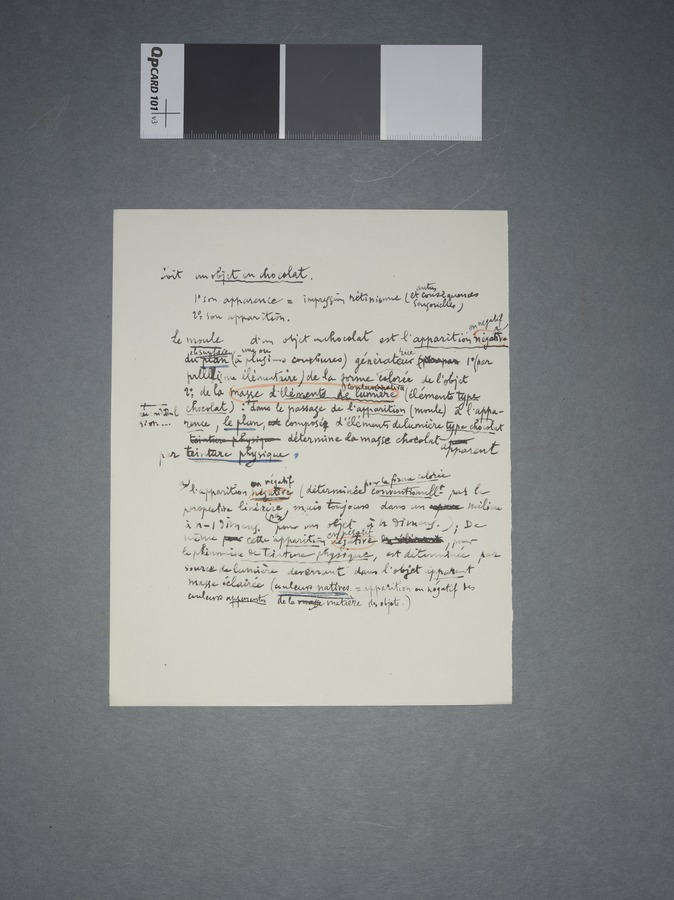 QPCARD 101 v3
Soit un objet en chocolat.
autres
1° son apparence = impression rétinienne (et conséquences
sensorielles)
2° son apparition.
en négatif
Le moule d'un objet en chocolat est l'apparition négative
et surface une ou
du plan (à plusieurs courbures) générateur rice 1°/par
élémentaire) de la forme colorée de l'objet
2° de la masse d'éléments de lumière (éléments type
chocolat) : dans le passage de l'apparition (moule) à l'appa-
rence, le plan, composé d'éléments de lumière type chocolat
teinture physique détermine la masse chocolat apparent
par teinture physique.
en négatif pour la forme colorée
l'apparition négative (déterminée conventionellt par la
perspective linéaire, mais toujours dans un milieu
à n-1 dimens. pour un objet à n dimens.); De
en négatif
même cette apparition négative, pour
le phénomène de teinture physique, est déterminée par
source de lumière devenant dans l'objet apparent
masse éclairée (couleurs natives = apparition en négatif des
couleurs apparentes de la matière des objets.)